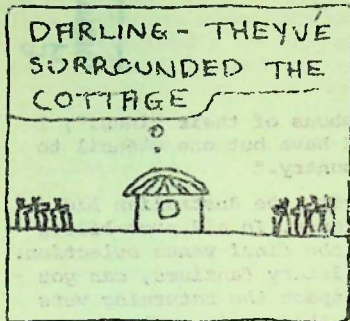 DARLING - THEYVE
SURROUNDED THE
COTTAGE